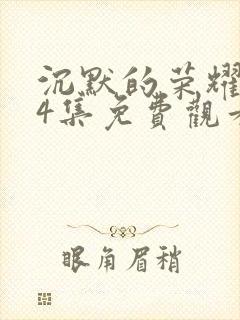 沉默的荣耀
4集免費觀
眼角眉梢